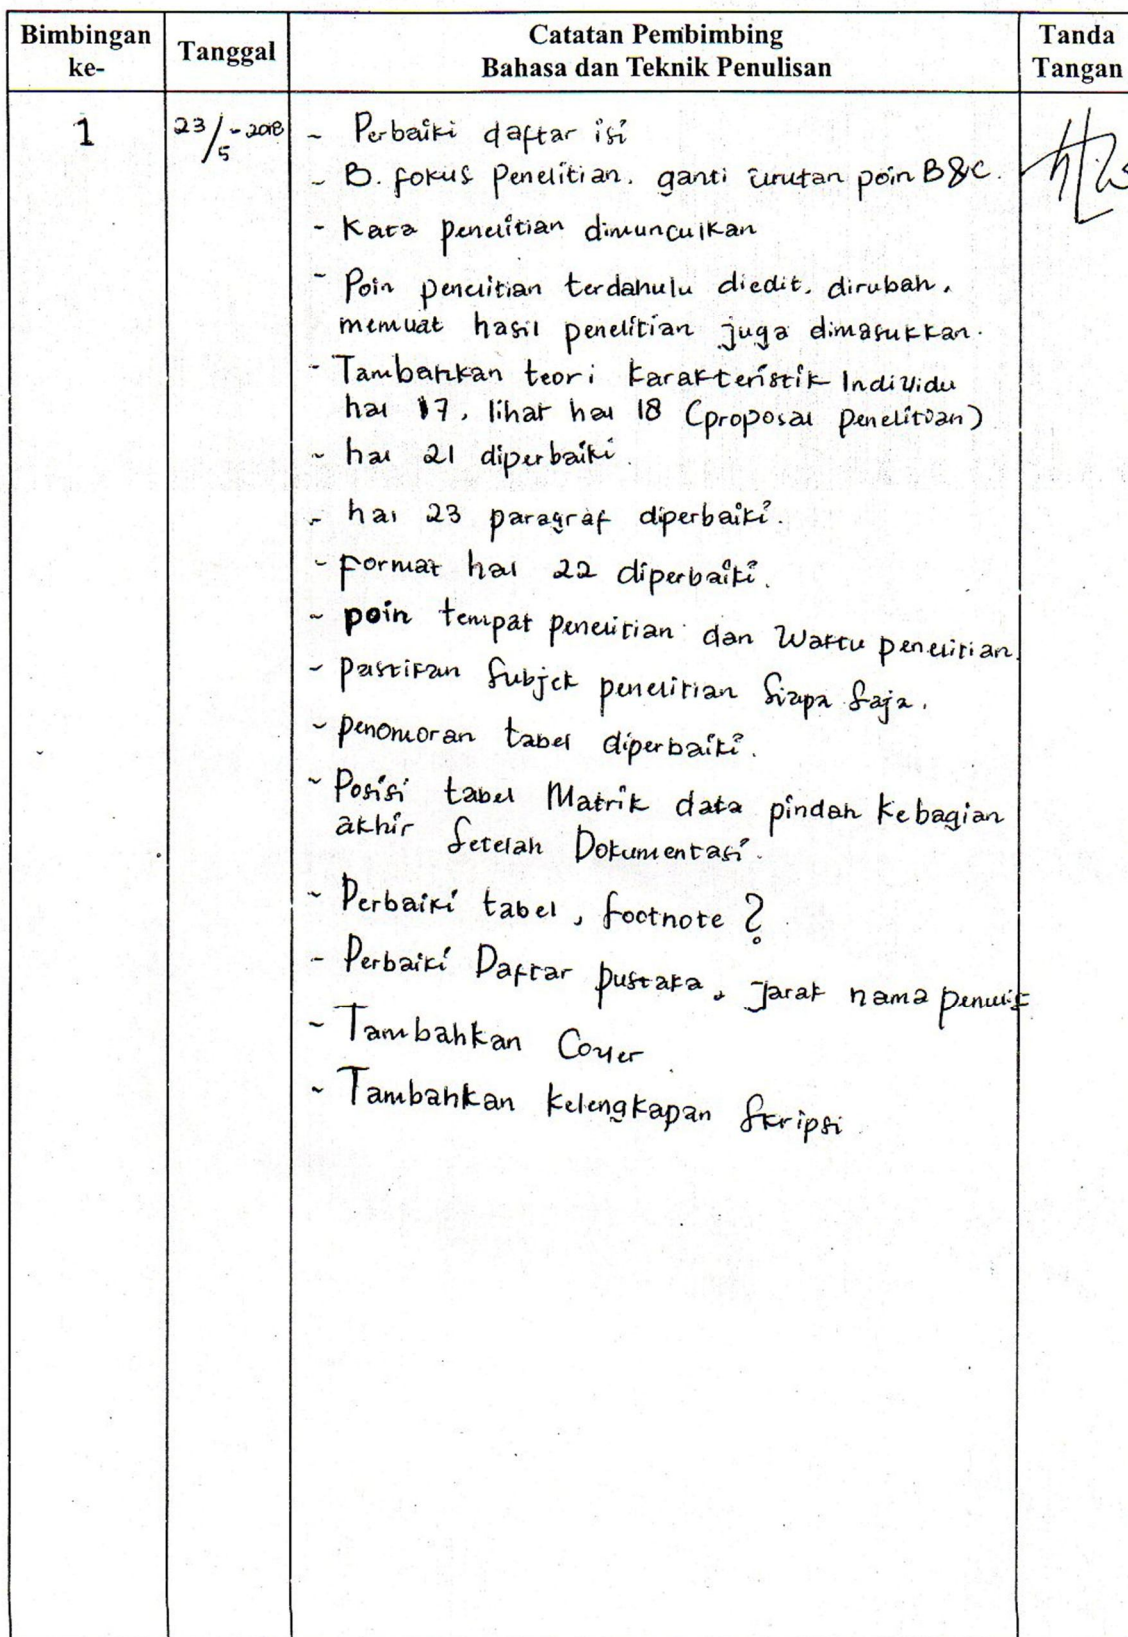 Bimbingan ke-
Tanggal
Catatan Pembimbing
Bahasa dan Teknik Penulisan
Tanda Tangan
1
23/5-2018
- Perbaiki daftar isi
- B. fokus Penelitian. ganti urutan poin B&C.
- Kata penelitian dimunculkan
- Poin penelitian terdahulu diedit, dirubah,
memuat hasil penelitian juga dimasukkan.
- Tambahkan teori karakteristik Individu
hal 17, lihat hal 18 (proposal penelitian)
- hal 21 diperbaiki.
- hal 23 paragraf diperbaiki.
- Format hal 22 diperbaiki.
- poin tempat penelitian dan Waktu penelitian.
- pastikan Subjek penelitian Siapa Saja.
- penomoran tabel diperbaiki.
- Posisi tabel Matrik data pindah kebagian
akhir Setelah Dokumentasi.
- Perbaiki tabel, footnote?
- Perbaiki Daftar pustaka, Jarak nama penulis
- Tambahkan Cover
- Tambahkan kelengkapan Skripsi